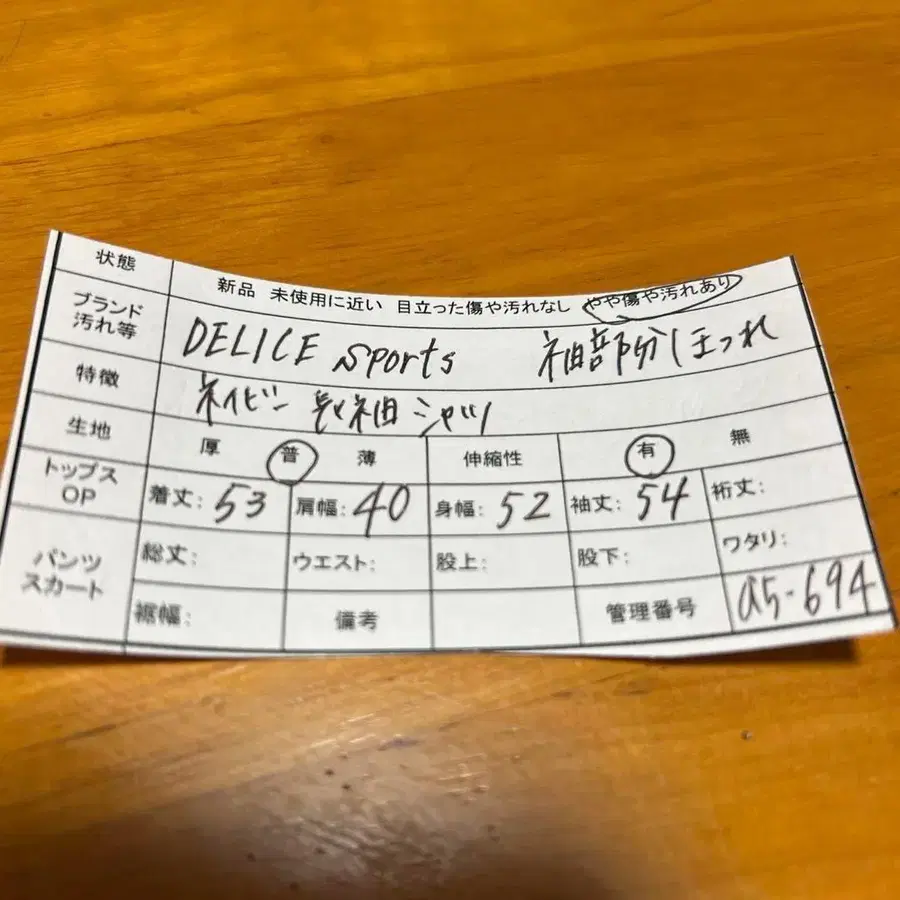 状態 新品 未使用に近い 目立った傷や汚れなし やや傷や汚れあり
ブランド 汚れ等 DELICE sports 袖部分ほつれ
特徴 ネイビー 長袖シャツ
生地 厚 普 薄 伸縮性 有 無
トップス OP 着丈: 53 肩幅: 40 身幅: 52 袖丈: 54 裄丈:
パンツ スカート 総丈: ウエスト: 股上: 股下: ワタリ:
裾幅: 備考 管理番号 a5-694